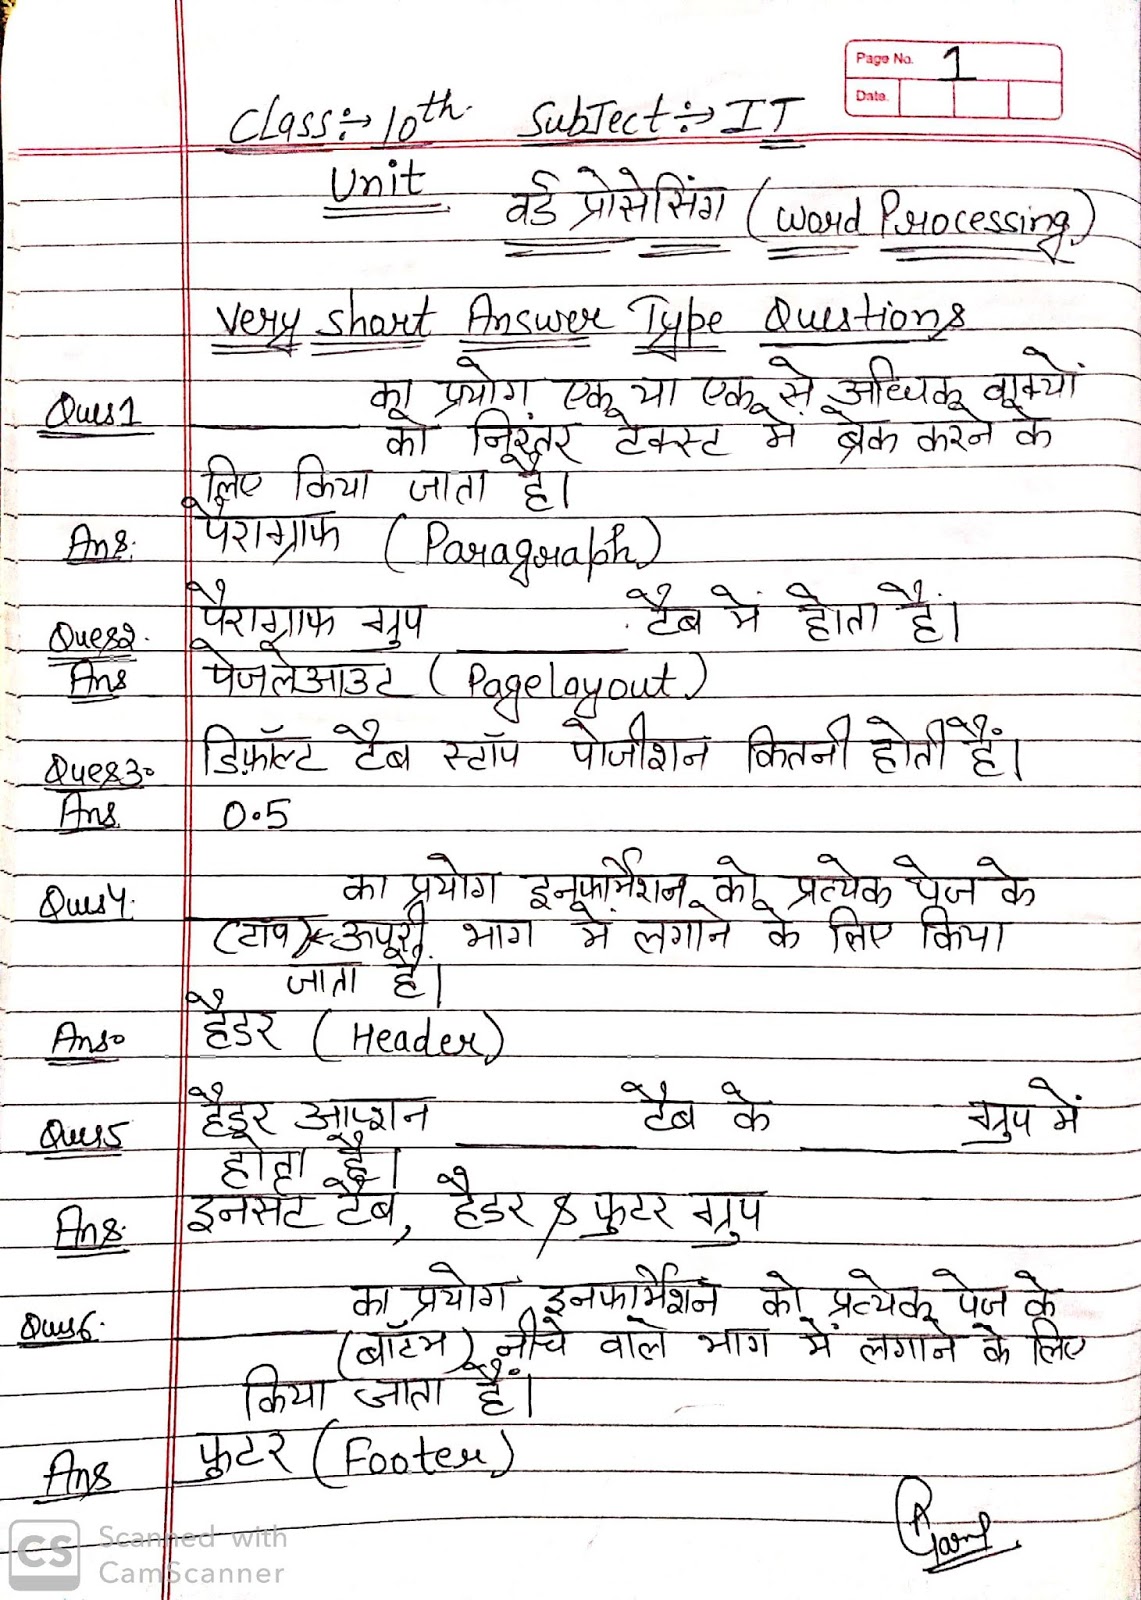 Page No. 1
Date.
Class:→ 10th. Subject:→ IT
Unit वर्ड प्रोसेसिंग (Word Processing)
Very Short Answer Type Questions
Ques1 ______ का प्रयोग एक या एक से अधिक वाक्यों
को निरंतर टेक्स्ट में ब्रेक करने के
लिए किया जाता है।
Ans. पैराग्राफ (Paragraph)
Ques2. पैराग्राफ ग्रुप ______ टैब में होता है।
Ans पेजलेआउट (Pagelayout)
Ques3. डिफ़ॉल्ट टैब स्टॉप पोजीशन कितनी होती हैं।
Ans 0.5
Ques4. ______ का प्रयोग इनफार्मेशन को प्रत्येक पेज के
(टॉप) ऊपरी भाग में लगाने के लिए किया
जाता है।
Ans. हैडर (Header)
Ques5 हैडर आप्शन ______ टैब के ______ ग्रुप में
होता है।
Ans. इनसर्ट टैब, हैडर & फुटर ग्रुप
Ques6. ______ का प्रयोग इनफार्मेशन को प्रत्येक पेज के
(बॉटम) नीचे वाले भाग में लगाने के लिए
किया जाता है।
Ans फुटर (Footer)
CS Scanned with
CamScanner